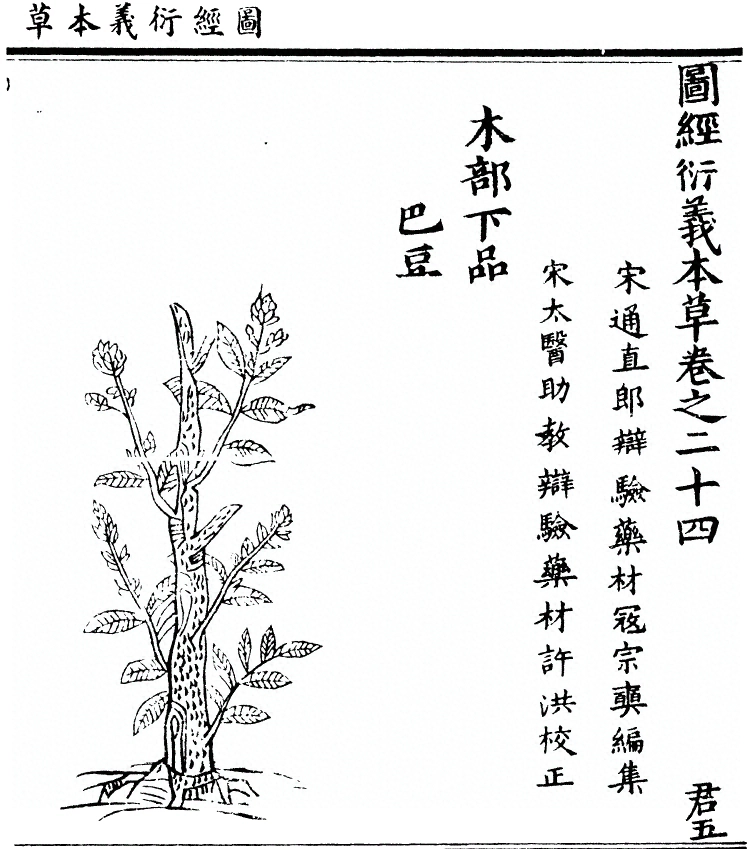 圖經衍義本草
圖經衍義本草卷之二十四
君五
宋通直郎辯驗藥材寇宗奭編集
宋太醫助教辯驗藥材許洪校正
木部下品
巴豆